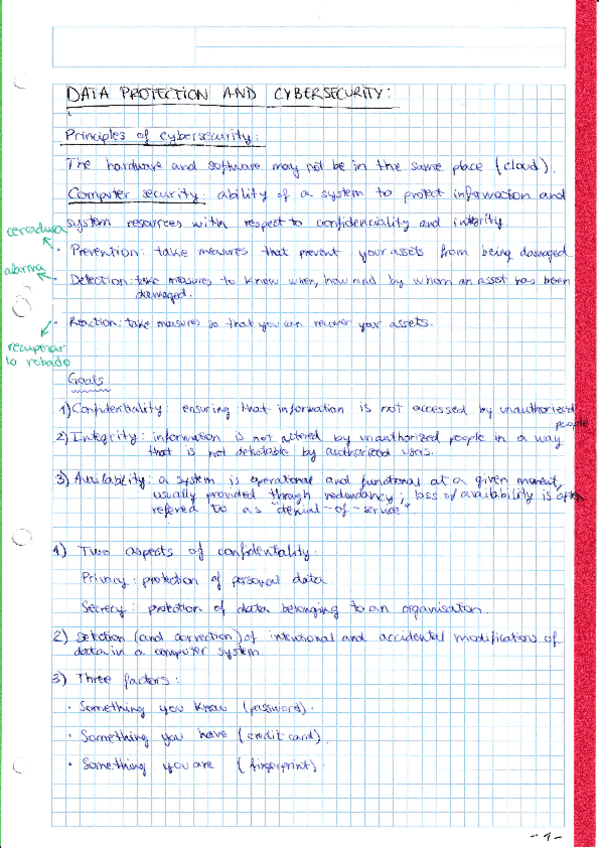 DATA PROTECTION AND CYBERSECURITY:
Principles of cybersecurity:
The hardware and software may not be in the same place (cloud).
Computer security: ability of a system to protect information and
system resources with respect to confidenciality and integrity.
cerradura
· Prevention: take measures that prevent your assets from being damaged.
alarma
· Detection: take measures to know when, how and by whom an asset has been
damaged.
· Reaction: take measures so that you can recover your assets.
recuperar
lo robado
Goals
1) Confidentiality: ensuring that information is not accessed by unauthorized
people
2) Integrity: information is not altered by unauthorized people in a way
that is not detectable by authorized users.
3) Availability: a system is operational and functional at a given moment,
usually provided through redundancy; loss of availability is often
refered to as "denial-of-service"
1) Two aspects of confidentality:
Privacy: protection of personal data.
Secrecy: protection of data belonging to an organisation.
2) Detection (and correction) of intentional and accidental modifications of
data in a computer system.
3) Three factors:
· Something you know (password).
· Something you have (credit card).
· Something you are (fingerprint).
-1-